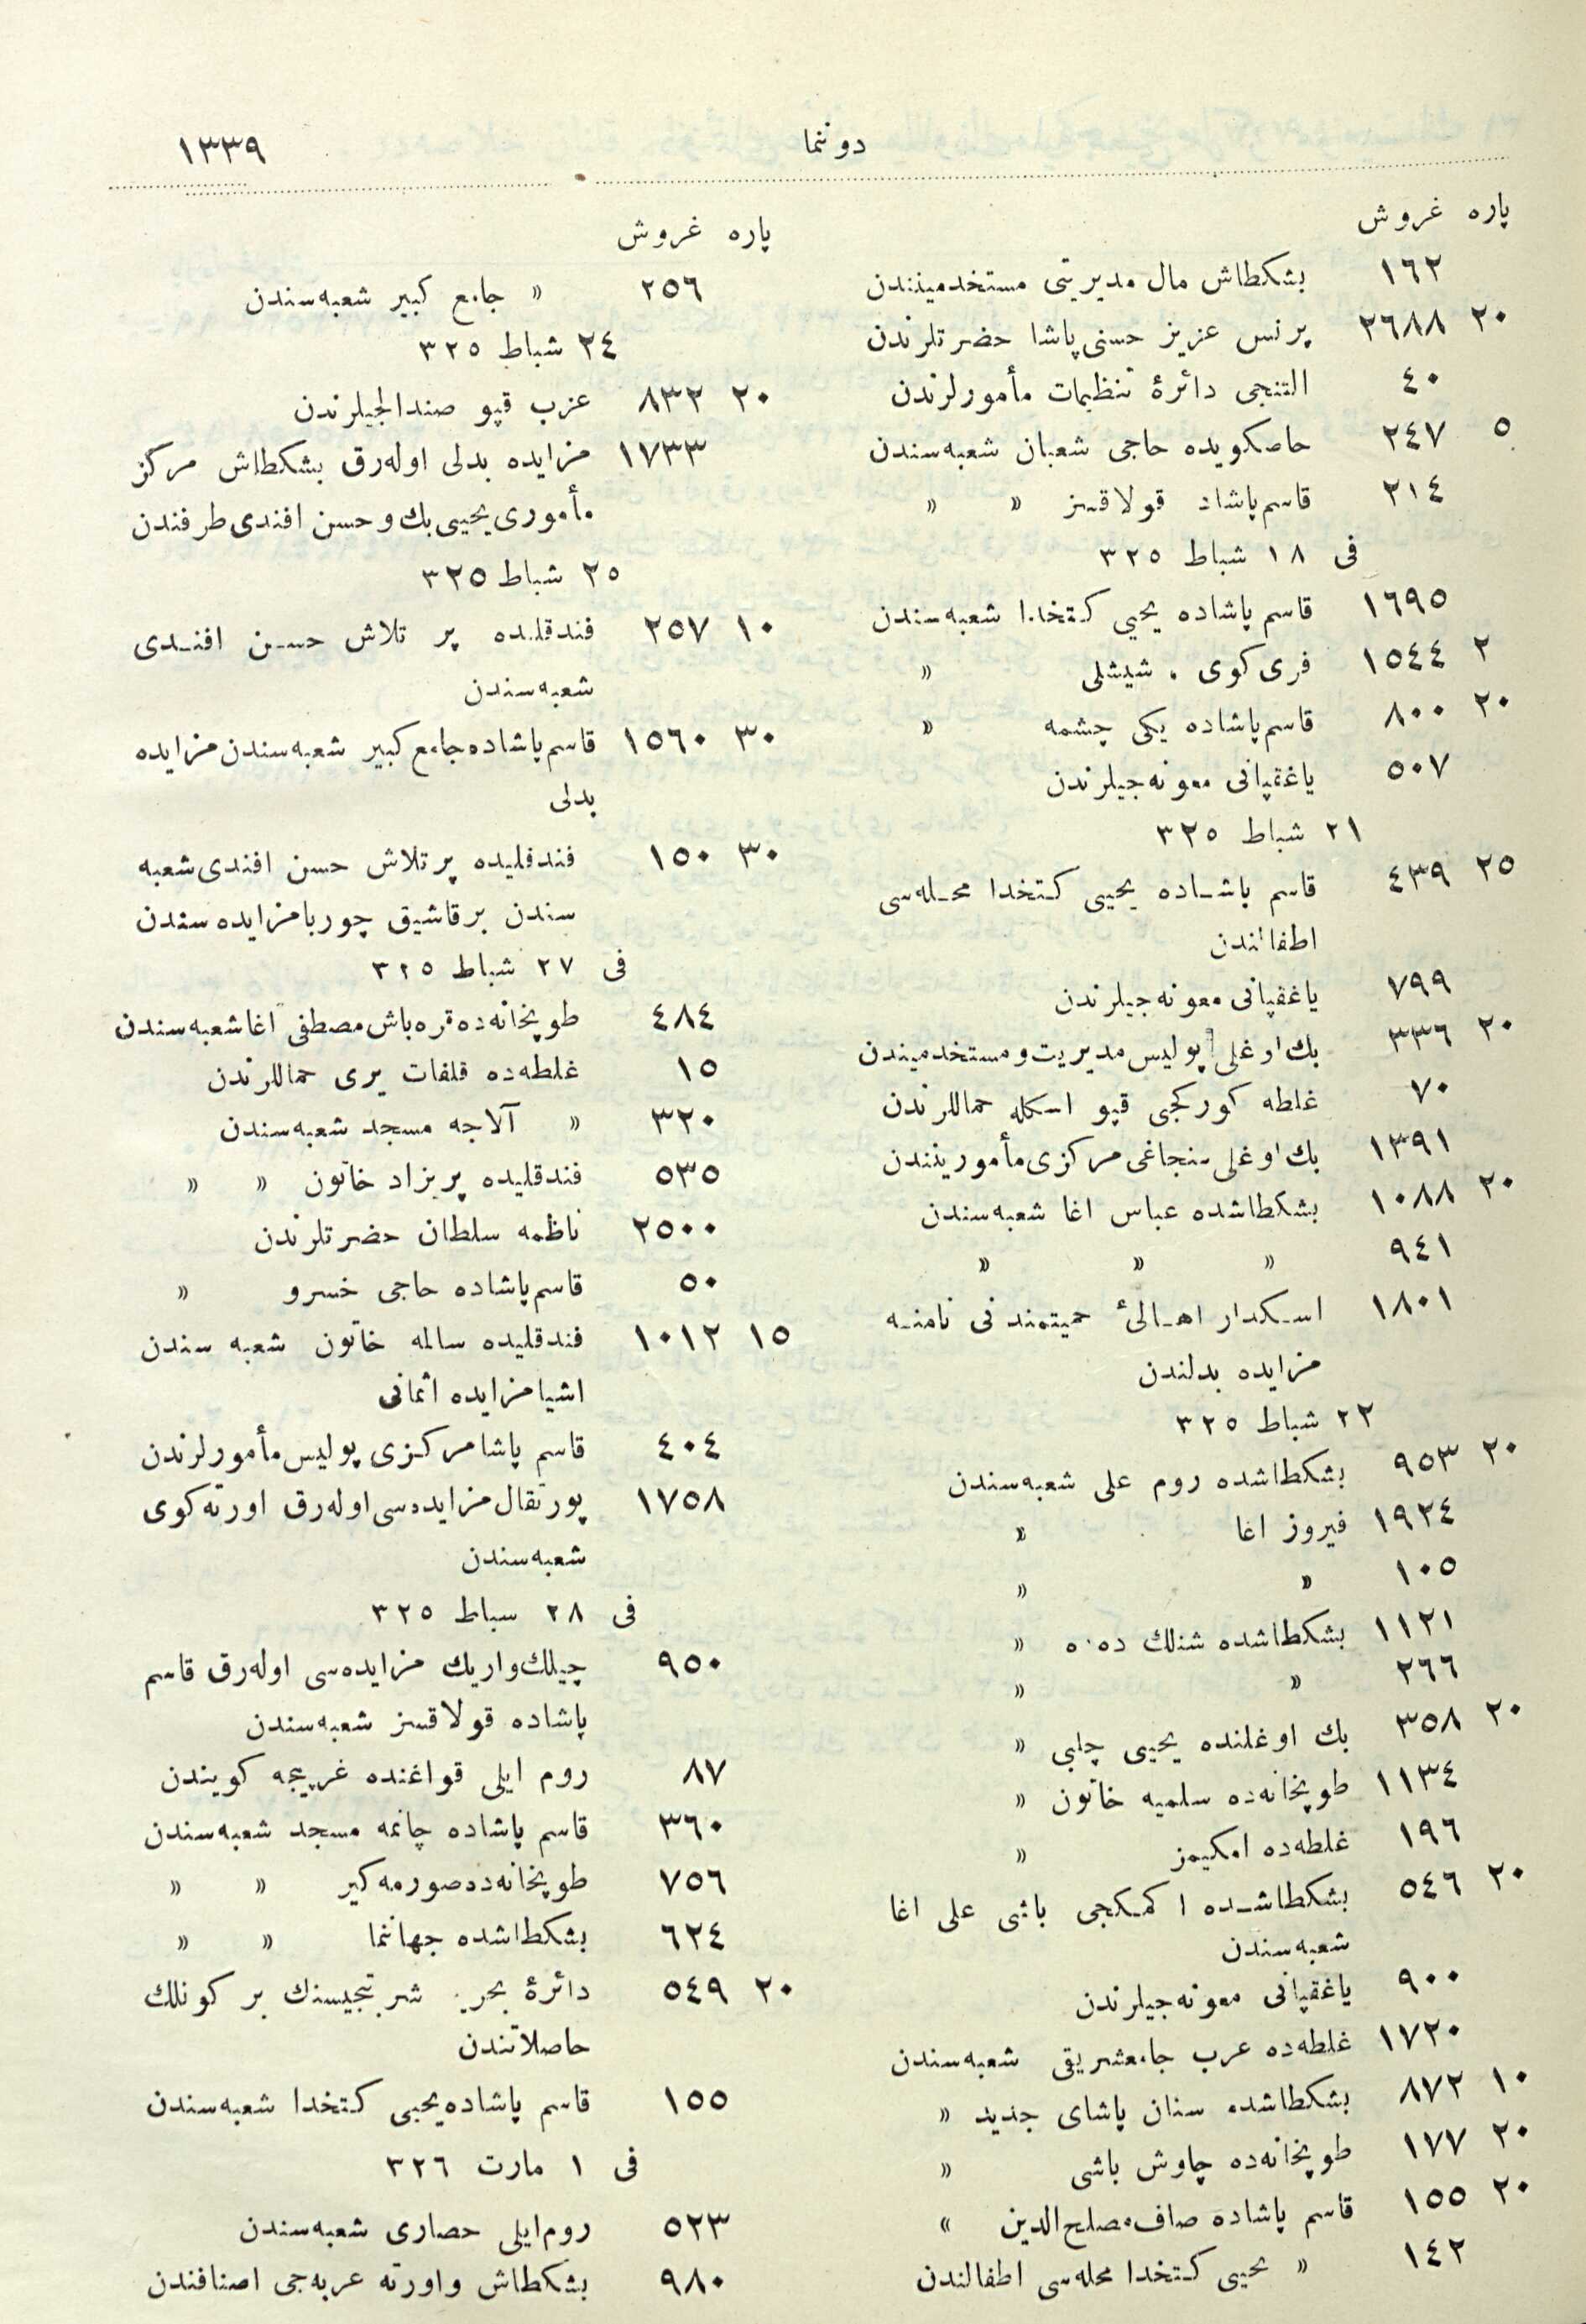 دوننما ١٣٣٩
پاره غروش
١٦٢ بشكطاش مال مديريتى مستخدميندن
٢٠ ٢٦٨٨ پرنس عزيز حسنى پاشا حضرتلرندن
٤٠ التنجى دائرۀ تنظيمات مأمورلرندن
٥ ٢٤٧ حاصكويده حاجى شعبان شعبه‌سندن
٢١٤ قاسم پاشاد قولاقسز « «
فى ١٨ شباط ٣٢٥
١٦٩٥ قاسم پاشاده يحيي كتخدا شعبه‌سندن
٢ ١٥٤٤ فرى كوى . شيشلى «
٢٠ ٨٠٠ قاسم پاشاده يكى چشمه «
٥٠٧ ياغقپانى معونه‌جيلرندن
٢١ شباط ٣٢٥
٢٥ ٤٣٩ قاسم پاشاده يحيى كتخدا محله‌سى
اطفالندن
٧٩٩ ياغقپانى معونه‌جيلرندن
٢٠ ٣٣٦ بك اوغلى پوليس مديريت و مستخدميندن
٧٠ غلطه كوركجى قپو اسكله حماللرندن
١٣٩١ بك اوغلى سنجاغى مركزى مأمورينندن
٢٠ ١٠٨٨ بشكطاشده عباس اغا شعبه‌سندن
٩٤١ « « «
١٨٠١ اسكدار اهالئ حميتمندفى نامنه
مزايده بدلندن
٢٢ شباط ٣٢٥
٢٠ ٩٥٣ بشكطاشده روم على شعبه‌سندن
١٩٢٤ فيروز اغا «
١٠٥ « «
١١٢١ بشكطاشده شنلك ده‌ده «
٢٦٦ « «
٢٠ ٣٥٨ بك اوغلنده يحيى چلبي «
١١٣٤ طوپخانه‌ده سلميه خاتون «
١٩٦ غلطه‌ده امكيمز «
٢٠ ٥٤٦ بشكطاشده اكمكجى باشى على اغا
شعبه‌سندن
٩٠٠ ياغقپانى معونه‌جيلرندن
١٧٢٠ غلطه‌ده عرب جامعشريفى شعبه‌سندن
١٠ ٨٧٢ بشكطاشده سنان پاشاى جديد «
٢٠ ١٧٧ طوپخانه‌ده چاوش باشى «
٢٠ ١٥٥ قاسم پاشاده صاف مصلح‌الدين «
١٤٢ « يحيى كتخدا محله‌سى اطفالندن
پاره غروش
٢٥٦ « جامع كبير شعبه‌سندن
٢٤ شباط ٣٢٥
٢٠ ٨٣٢ عزب قپو صندالجيلرندن
١٧٣٣ مزايده بدلى اوله‌رق بشكطاش مركز
مأمورى يحيى بك و حسن افندى طرفندن
٢٥ شباط ٣٢٥
١٠ ٢٥٧ فندقليده پر تلاش حسن افندى
شعبه‌سندن
٣٠ ١٥٦٠ قاسم پاشاده جامع كبير شعبه‌سندن مزايده
بدلى
٣٠ ١٥٠ فندقليده پر تلاش حسن افندى شعبه
سندن برقاشيق چوربا مزايده سندن
فى ٢٧ شباط ٣٢٥
٤٨٤ طوپخانه‌ده قره‌باش مصطفى اغا شعبه‌سندن
١٥ غلطه‌ده قلفات يرى حماللرندن
٣٢٠ « آلاجه مسجد شعبه‌سندن
٥٣٥ فندقليده پريزاد خاتون « «
٢٥٠٠ ناظمه سلطان حضرتلرندن
٥٠ قاسم پاشاده حاجى خسرو «
١٥ ١٠١٢ فندقليده سالمه خاتون شعبه سندن
اشيا مزايده اثمانى
٤٠٤ قاسم پاشا مركزى پوليس مأمورلرندن
١٧٥٨ پورتقال مزايده‌سى اوله‌رق اورته‌كوى
شعبه‌سندن
فى ٢٨ سباط ٣٢٥
٩٥٠ چيلك واريك مزايده‌سى اوله‌رق قاسم
پاشاده قولاقسز شعبه‌سندن
٨٧ روم ايلى قواغنده غريبجه كويندن
٣٦٠ قاسم پاشاده چاتمه مسجد شعبه‌سندن
٧٥٦ طوپخانه‌ده صورمه‌كير « «
٦٢٤ بشكطاشده جهاننما « «
٢٠ ٥٤٩ دائرۀ بحريه شربتجيسنك بر كونلك
حاصلاتندن
١٥٥ قاسم پاشاده يحيى كتخدا شعبه‌سندن
فى ١ مارت ٣٢٦
٥٢٣ روم‌ايلى حصارى شعبه‌سندن
٩٨٠ بشكطاش و اورته عربه‌جى اصنافندن